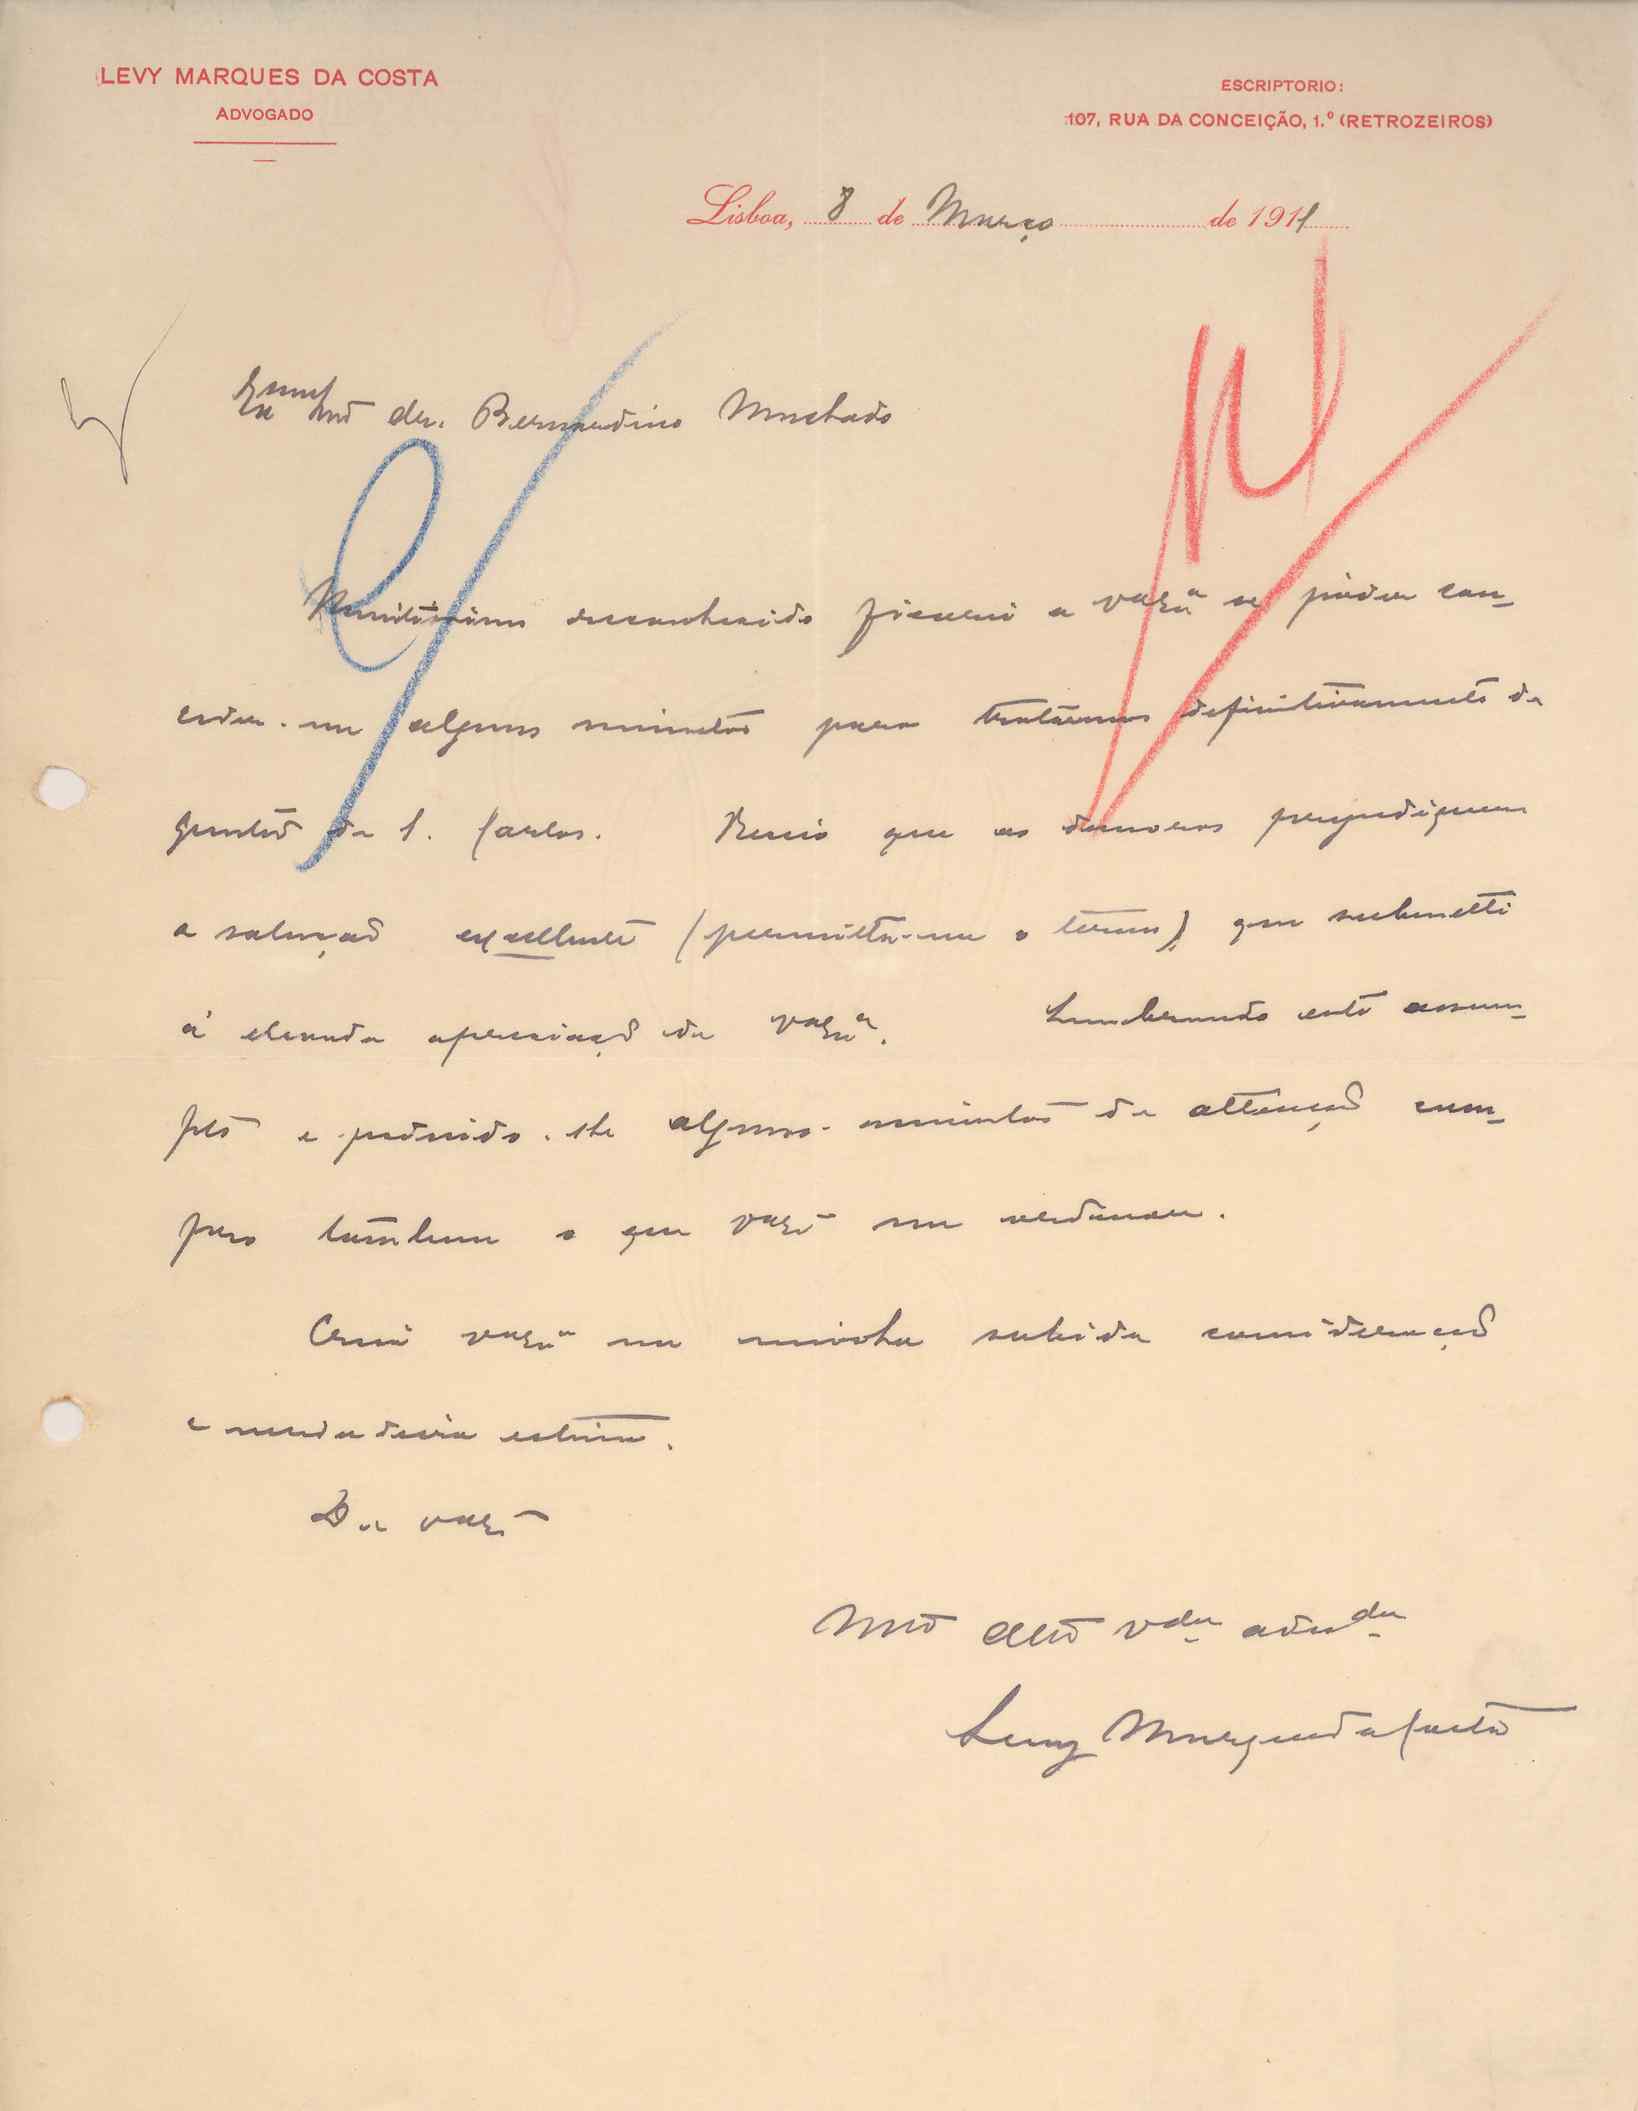 LEVY MARQUES DA COSTA
ADVOGADO
ESCRIPTORIO:
107, RUA DA CONCEIÇÃO, 1.º (RETROZEIROS)
Lisboa, 8 de Março de 1911
dr. Bernardino Machado
Muitissimo reconhecido ficarei a vexª se poder con-
ceder-me alguns minutos para tratarmos definitivamente da
questão de S. Carlos. Receio que as demoras prejudiquem
a solução excellente (permitta-me o termo), que submetti
á elevada apreciaçã de vexª. Lembrando este assum-
pto e pedindo-lhe alguns minutos de attenção cum-
pro tambem o que vexª me ordenou.
Creia vexª na minha subida consideração
e verdadeira estima.
De vexª
Mto atto vdor admdor
Levy Marques da Costa